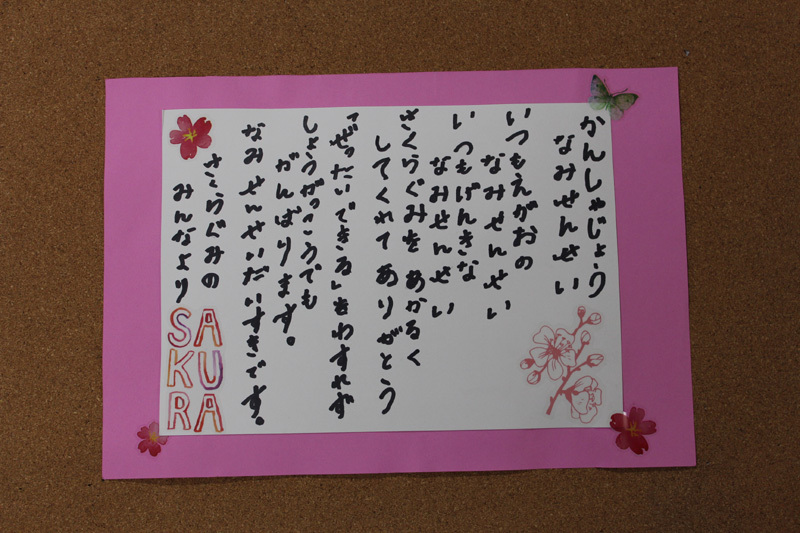 かんしゃじょう
なみせんせい
いつもえがおの
なみせんせい
いつもげんきな
なみせんせい
さくらぐみを あかるく
してくれて ありがとう
「ぜったいできる」をわすれず
しょうがっこうでも
がんばります。
なみせんせいだいすきです。
さくらぐみの
みんなより
SA
KU
RA